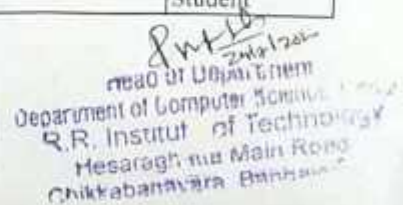 Student
Head of Department
Department of Computer Science
R.R. Institut of Technology
Hesaraghatta Main Road
Chikkabanavara